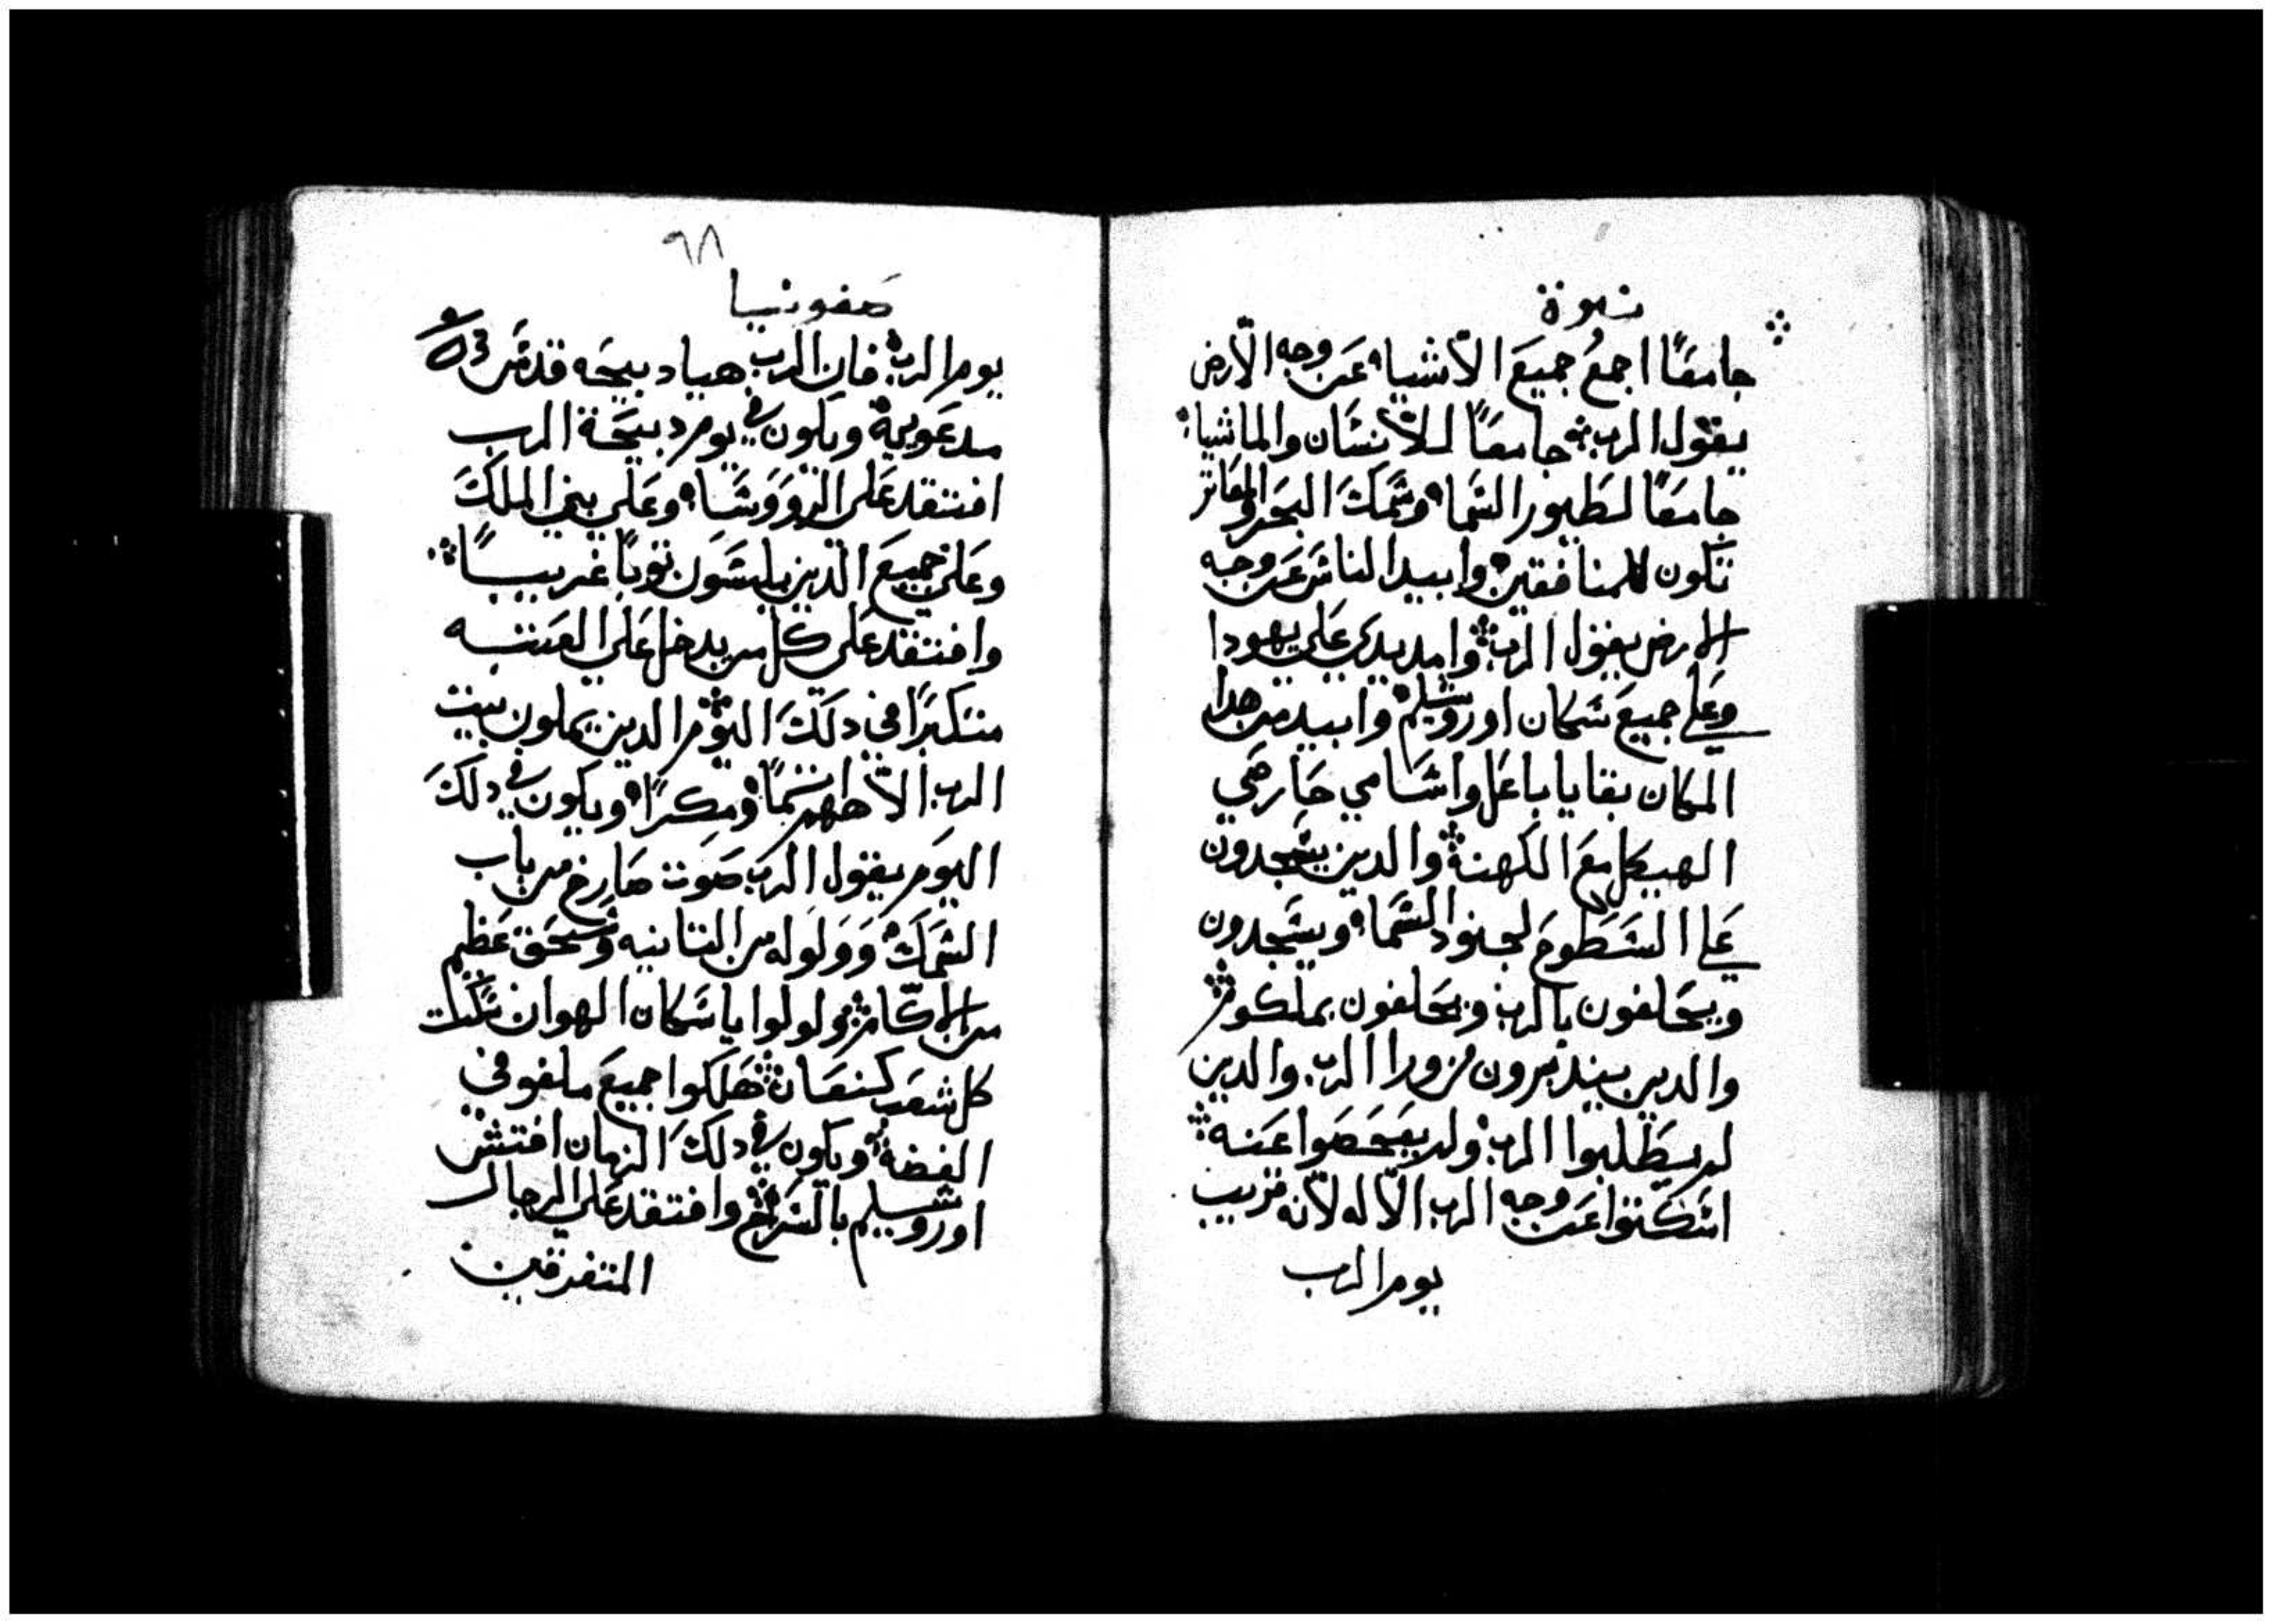 نبوة
جامعًا اجمعُ جميعَ الأشياء عَن وجه الأرض
يقول الرب جامعًا للأنسَان والماشيا
جامعًا لطيور السَما وسَمكَ البحَر والمعَاتر
تكون للمنافقين وابيد الناس عَن وجه
الارض يقول الرب وامد يدي عَلي يهودا
وعَلي جميعَ سَكان اوروسَليم وابيد من هدا
المكان بقايا باعَل واسَامي حَارصَي
الهيكل معَ الكهنة والدين يسَجدون
عَلي السَطوحَ لجنود السَما ويسَجدون
ويحَلفون بالرب ويحَلفون بملكوم
والدين يندمرون لزورا الرب والدين
لم يطلبوا الرب ولم يفحَصَوا عَنه
اسَكتوا عَن وجه الرب الأله لأنه قريب
يوم الرب
٩٨
صفونيا
يوم الرب فان الرب هيا دبيحَه قدسَ
مدعَويية ويكون في يوم دبيحَة الرب
افتقد عَلي الروَوَسَا وعَلي بني الملكَ
وعَلي جميعَ الدين يلبسَون توبًا غريبًا
وافتقد عَلي كل من يدخل عَلي العَتبه
متكبرًا في دلكَ اليوم الدين يملون بيت
الرب الأههم تمًا ومكرًا ويكون في دلكَ
اليوم يقول الرب صَوت صَارخ من باب
السَمكَ وَوَلوَله من التانيه وسَحَق عَظيم
من الاكَام ولولوا يا سَكان الهوان سَكت
كل شعَب كنعَان هَلكوا جميعَ ملفوفي
الفضة ويكون في دلكَ الزمان افتش
اوروشليم بالسَراج وافتقد عَلي الرجال
المتفرقين